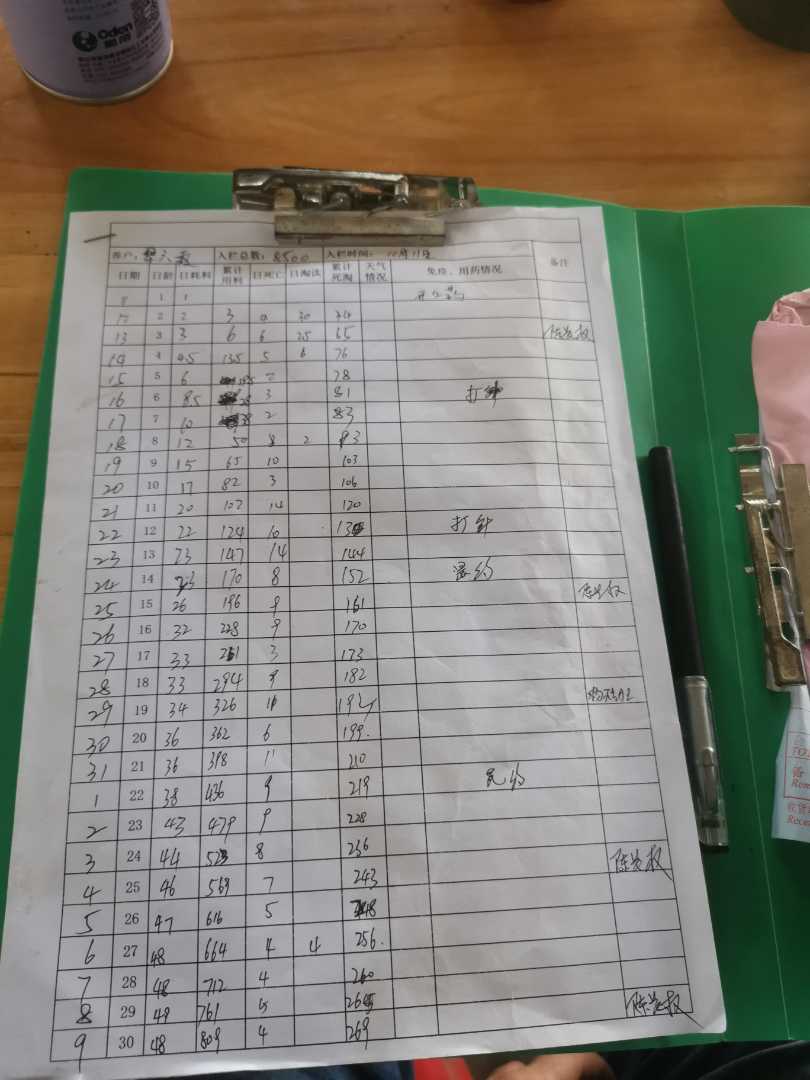 Oden
入栏总数：8500 入栏时间：10月11日
日期 日龄 日耗料 累计用料 日死亡 日淘汰 累计死淘 天气情况 免疫、用药情况 备注
1 1
2 2 3 30
13 3 3 6 6 25 65 陈发权
14 4 4.5 13.5 5 6 76
15 5 6 2 78
16 6 8.5 3 81 打针
17 7 10 2 83
18 8 12 50 8 2 93
19 9 15 65 10 103
20 10 17 82 3 106
21 11 20 102 14 120
22 12 22 124 10 130 打针
23 13 23 147 14 144
24 14 23 170 8 152
25 15 26 196 9 161
26 16 32 228 9 170
27 17 33 261 3 173
28 18 33 294 9 182
29 19 34 326 11
30 20 36 362 6 199.
31 21 36 398 11 210
1 22 38 436 9 219
2 23 43 479 9 228
3 24 44 523 8 236 陈发权
4 25 46 569 7 243
5 26 47 616 5 248
6 27 48 664 4 4 256.
7 28 48 712 4 260
8 29 49 761 5 265 陈发权
9 30 48 809 4 269